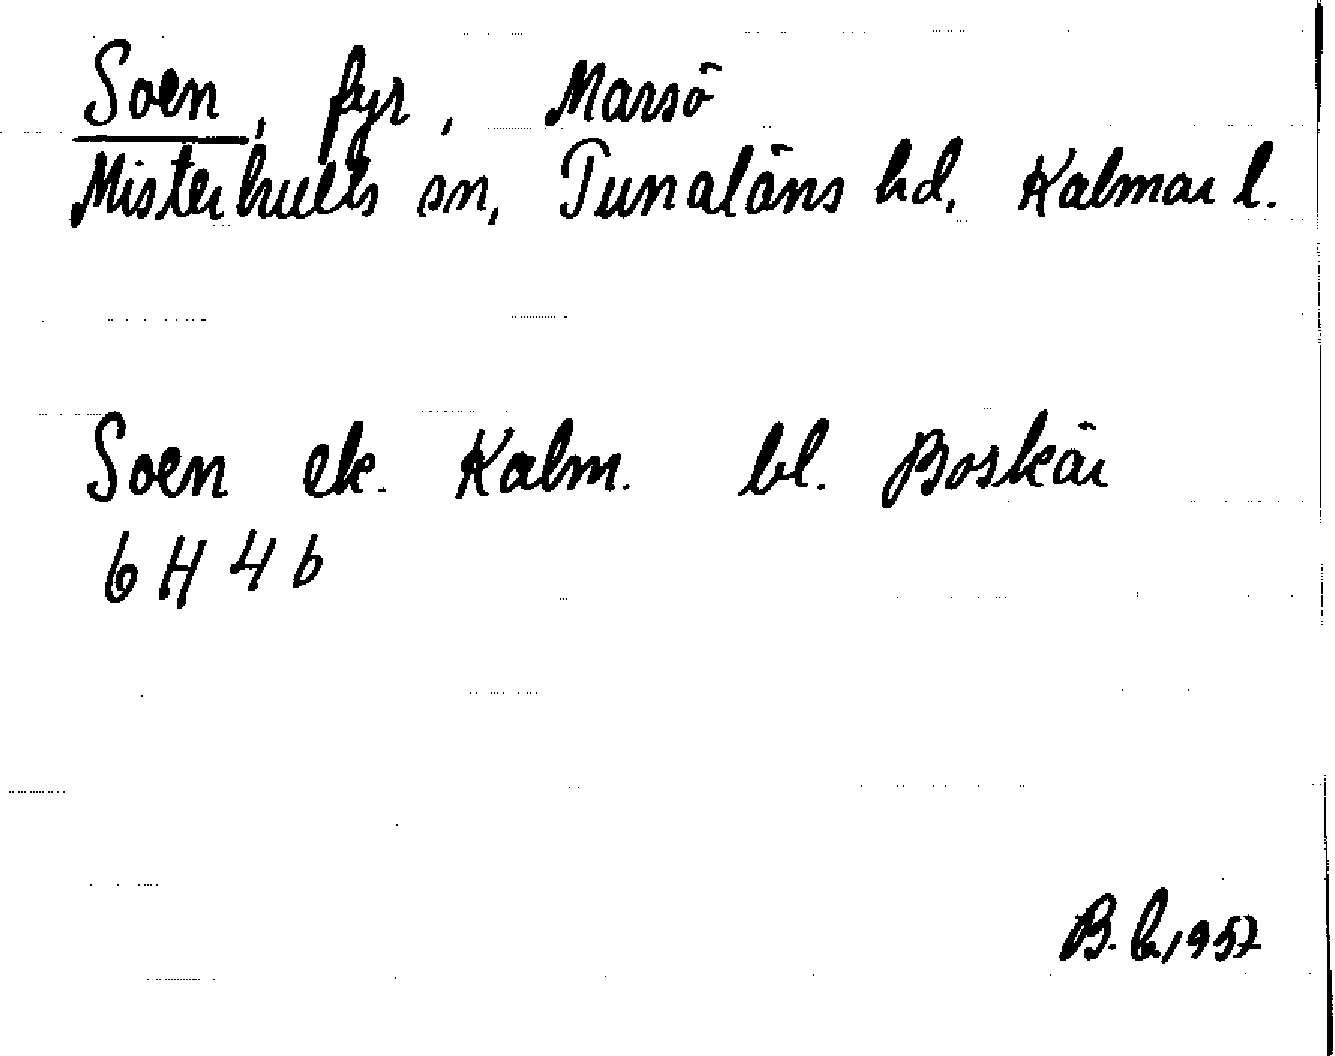 Soen, fyr, Marsö
Misterhults sn, Tunaläns hd, Kalmar l.
Soen ek. Kalm. bl. Boskär
6 H 4 b
B. 1957